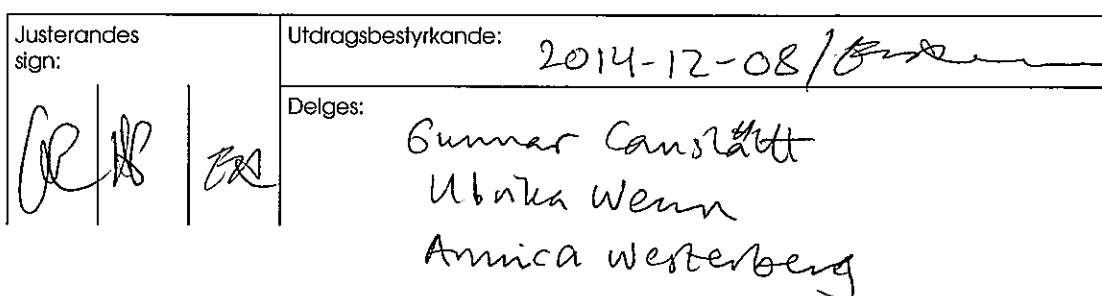 Justerandes
sign:
Utdragsbestyrkande:
2014-12-08/
Delges:
Gunnar
Ulrika Wenn
Annica Westerberg